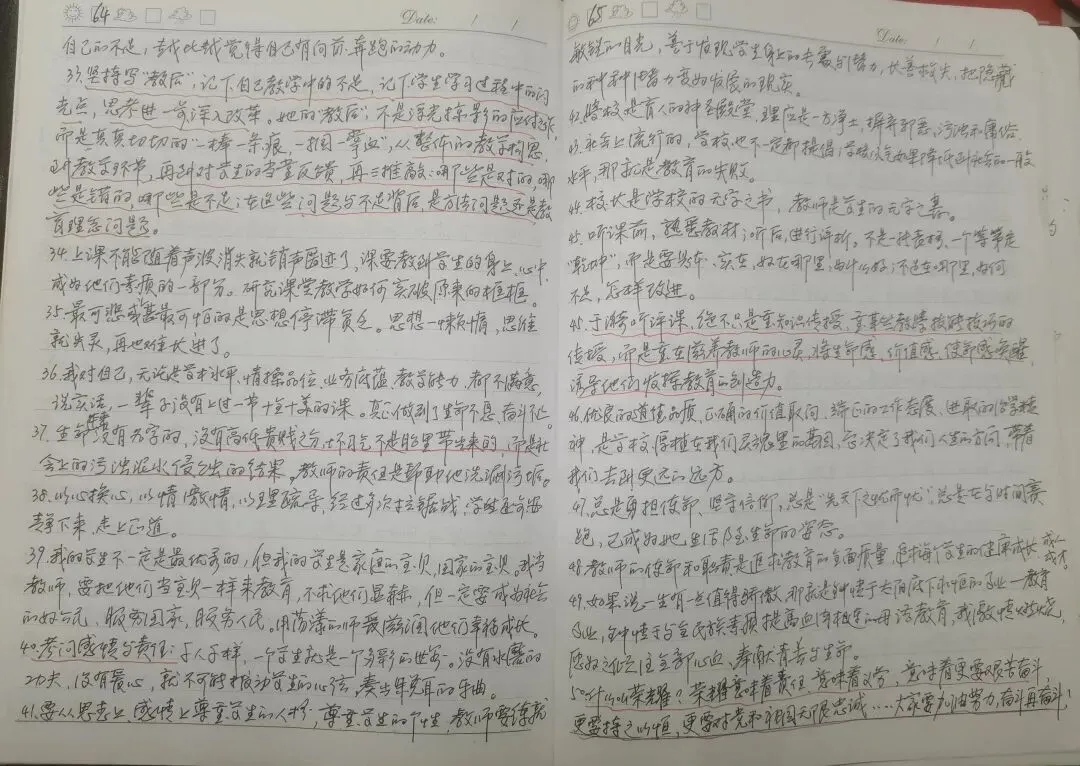 64
Date: / /
自己的不足，越比越觉得自己有向前奔跑的动力。
33.坚持写"教后"，记下自己教学中的不足，记下学生学习过程中的闪
光点，思考进一步深入改革。她的"教后"，不是浮光掠影的应付之作，
而是真真切切的"一棒一条痕，一掴一掌血"，从整体的教学构思，
到教学环节，再到对学生的当堂反馈，再三推敲：哪些是对的，哪
些是错的，哪些是不足；在这些问题与不足背后，是方法问题还是教
育理念问题。
34.上课不能随着声波消失就销声匿迹了，课要教到学生的身上、心中，
成为他们素质的一部分。研究课堂教学如何突破原来的框框。
35.最可悲或甚最可怕的是思想停滞贫乏。思想一懒惰，思维
就失灵，再也难长进了。
36.我对自己，无论是学术水平、情操品位、业务底蕴、教学能力，都不满意，
说实话，一辈子没有上过一节十全十美的课。真心做到了生命不息，奋斗不止。
37.生命没有名字的，没有高低贵贱之分，坏习气不是胎里带出来的，而是社
会上的污浊泥水侵蚀的结果。教师的责任是帮助他洗涮污垢。
38.以心换心，以情激情，以理疏导，经过多次拉锯战，学生还可安
静下来，走上正道。
39.我的学生不一定是最优秀的，但我的学生是家庭的宝贝，国家的宝贝。我当
教师，要把他们当宝贝一样来教育，不求他们显赫，但一定要成为社会
的好公民，服务国家，服务人民。用荡漾的师爱滋润他们幸福成长。
40.拷问感情与责任：于人子样，一个学生就是一个多彩的世界。没有水磨的
功夫，没有爱心，就不可能拨动学生的心弦，奏出悦耳的乐曲。
41.要从思想上、感情上尊重学生的人格，尊重学生的个性，教师要练就
65
Date: / /
敏锐的目光，善于发现学生身上的长处和潜力，长善救失，把隐藏
的种种潜力变为发展的现实。
42.学校是育人的神圣殿堂，理应是一方净土，摒弃邪恶、污浊和庸俗。
43.社会上流行的，学校也不一定都提倡；学校风气如果降低到社会的一般
水平，那就是教育的失败。
44.校长是学校的无字之书，教师是学生的无字之书。
45.听课前，熟悉教材；听后，进行评析。不是一张表格，一个等第定
"乾坤"，而是要具体、实在，好在哪里，为什么好；不足在哪里，为何
不足，怎样改进。
45.于漪听评课，绝不只是重知识传授、重某些教学技能技巧的
传授，而是重在滋养教师的心灵，将生命感、价值感、使命感唤醒，
诱导他们发挥教育的创造力。
46.优良的道德品质、正确的价值取向、端正的工作态度、进取的治学精
神，是学校厚植在我们灵魂里的基因，它决定了我们人生的方向，带着
我们去到更远的远方。
47.总是勇担使命、坚守信仰，总是"先天下之忧而忧"，总是在与时间赛
跑，已成为她生活及生命的姿态。
48.教师的使命和职责是追求教育的全面质量，追求每个学生的健康成长、成人
成才。
49.如果说一生有一些值得骄傲，那就是钟情于太阳底下永恒的事业——教育
事业，钟情于与全民族素质提高血肉相连的母语教育，我激情燃烧，
愿为之倾注全部心血，奉献青春与生命。
50.什么叫荣耀？荣耀意味着责任，意味着义务，意味着更要艰苦奋斗，
更要持之以恒，更要对党和祖国无限忠诚……大家要加油努力，奋斗再奋斗！